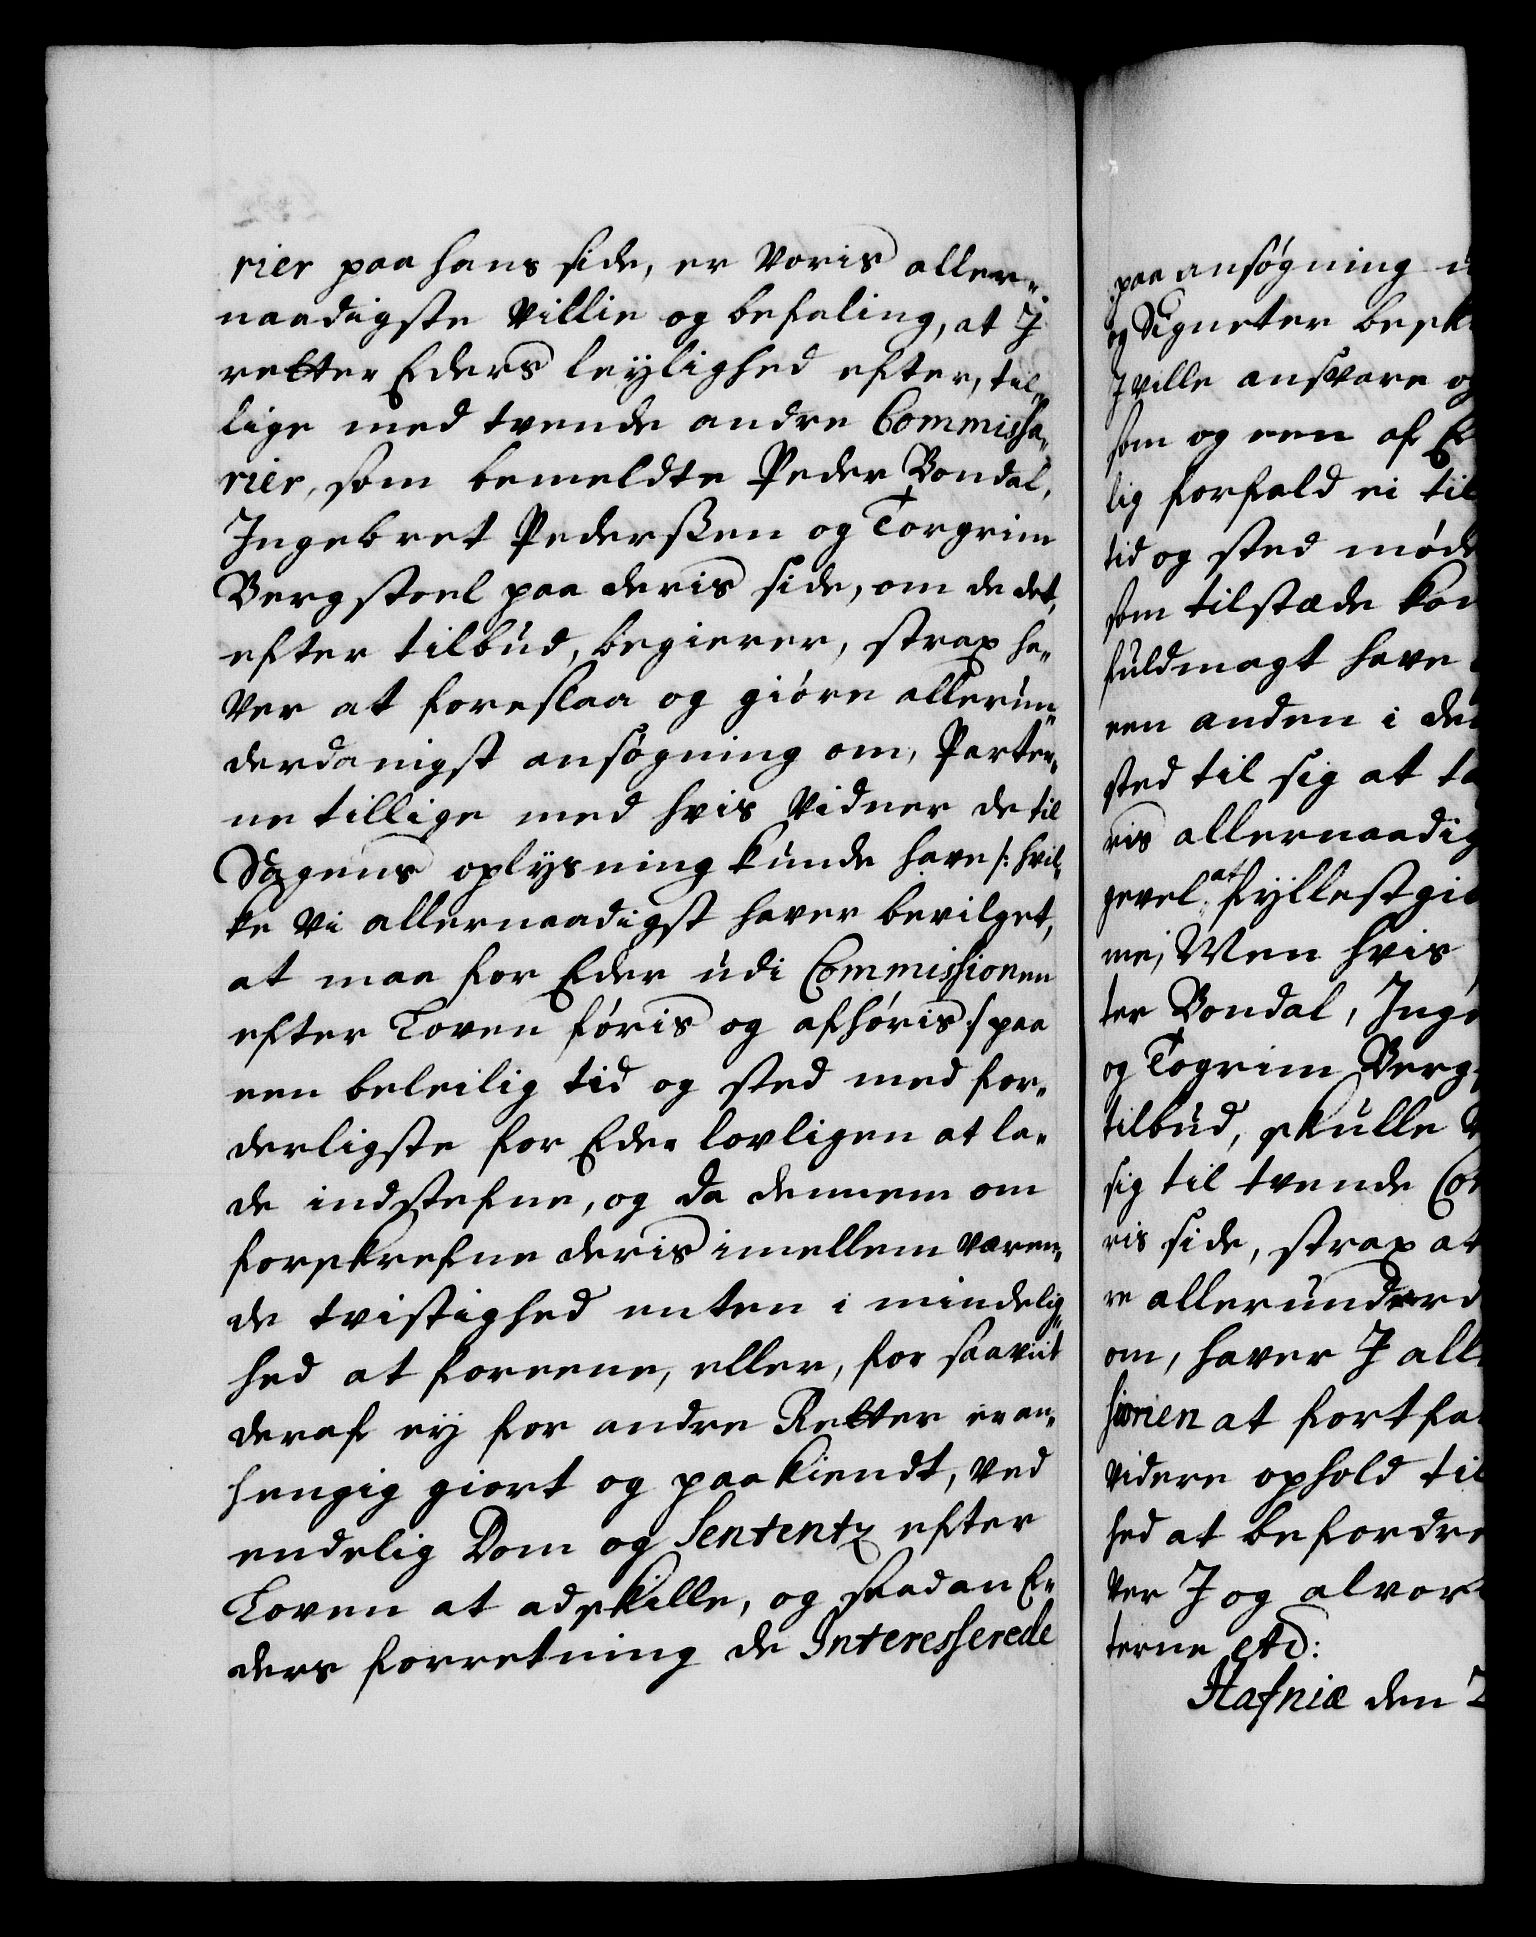 rier paa hans side, er Voris aller„
naadigste Villie og befaling, at I
retter Eders leylighed efter, til„
lige med tvende andre Commissa„
rier, som bemeldte Peder Bondal,
Ingebret Pederssen og Torgrim
Bergstoel paa deris side, om de det,
efter tilbud, begierer, strax ha„
ver at foreslaa og giøre allerun„
derdanigst ansøgning om, Parter„
ne tillige med hvis Vidner de til
Sagens oplysning kunde have /: hvil„
ke Vi allernaadigst haver bevilget,
at maa for Eder udi Commissionen
efter Loven føris og afhøris :/ paa
een beleilig tid og sted med for„
derligste for Eder lovligen at la„
de indstefne, og da dennem om
forskrefne deris imellem væren„
de tvistighed enten i mindelig„
hed at foreene, eller, for saaviit
deraf ey for andre Retter er an„
hengig giort og paakiendt, ved
endelig Dom og Sententz efter
Loven at adskille, og saadan E„
ders forretning de Interesserede
paa ansøgning
og Signeter besk
I ville ansvare og
som og een af E
lig forfald ei til
tid og sted møde
som tilstæde kom
fuldmagt have
een anden i de
sted til sig at ta
ris allernaadig
gevel at fyllestgiø
re; Men hvis
ter Bondal, Inge
og Togrim Berg
tilbud, skulle
sig til tvende Co
ris side, strax at
re allerunderd
om, haver I all
sionen at fortfa
videre ophold til
hed at befordre
ver I og alvor
terne etc:
Hafniæ den 2